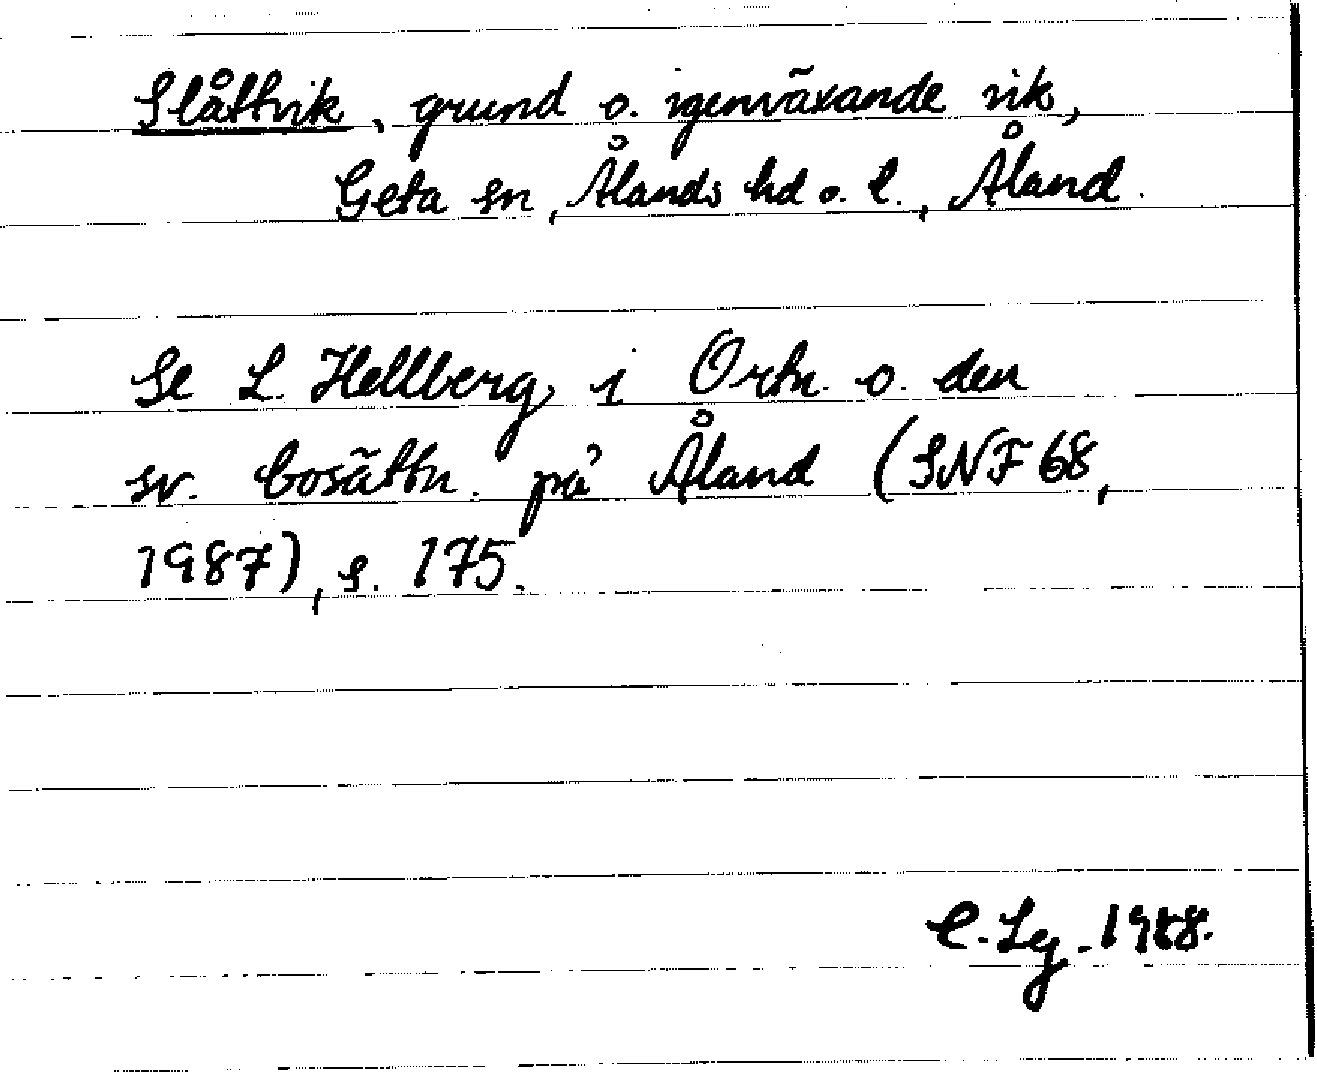 Slåttvik, grund o. igenväxande vik,
Geta sn, Ålands hd o. l., Åland.
Se L. Hellberg i Ortn. o. den
sv. bosättn. på Åland (SNF 68,
1987), s. 175.
C. Lg. 1988.